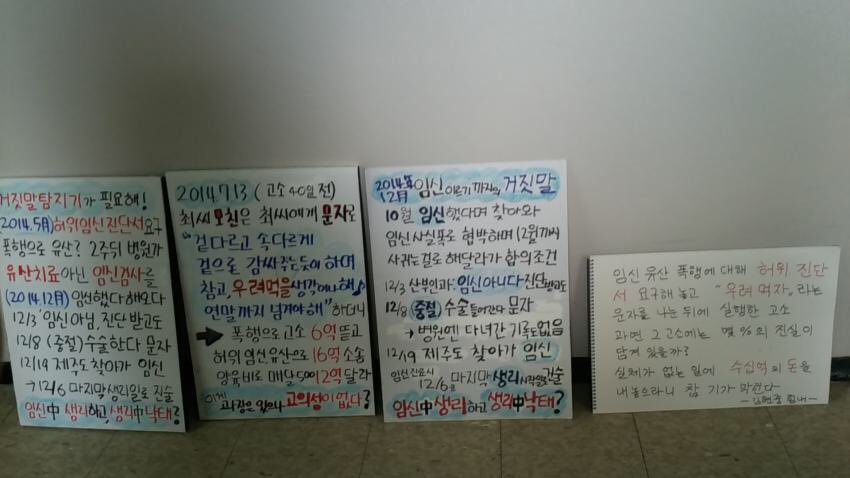 거짓말탐지기가 필요해!
(2014.5月)허위임신진단서요구
폭행으로 유산? 2주뒤 병원가
유산치료아닌 임신검사를
(2014.12月) 임신했다 해오다
12/3 '임신아님, 진단 받고도
12/8 (중절)수술한다 문자
12/19 제주도 찾아가 임신
→12/6 마지막생리일로 진술
임신中 생리하고, 생리中낙태?
2014.7.13 (고소 40일 전)
최씨모친은 최씨에게 문자로
"겉다르고 속다르게
겉으로 감싸주는듯이 하며
참고, 우려먹을생각해야해♪
연말까지 넘겨야해"하더니
→ 폭행으로고소 6억 뜯고
허위 임신유산으로16억 소송
양육비로 매달500 12억달라
이게 과장은 있으나 고의성이 없다?
2014年 12月 임신이르기까지의 거짓말
10월 임신했다며 찾아와
임신사실폭로 협박하며 12월까지
사귀는걸로 해달라가 합의조건
12/3 산부인과: 임신아니다 진단받고도
12/8 (중절)수술들어간다 문자
→ 병원엔 다녀간 기록없음
12/19 제주도 찾아가 임신
임신진료시 12/6일 마지막 생리시작일진술
임신中 생리하고 생리中낙태?
임신 유산 폭행에 대해 허위 진단
서 요구해 놓고 "우려 먹자"라는
문자를 나눈 뒤에 실행한 고소
과연 그 고소에는 몇 %의 진실이
담겨 있을까?
실체가 없는 일에 수십억의 돈을
내놓으라니 참 기가 막힌다
-김현중 힘내-